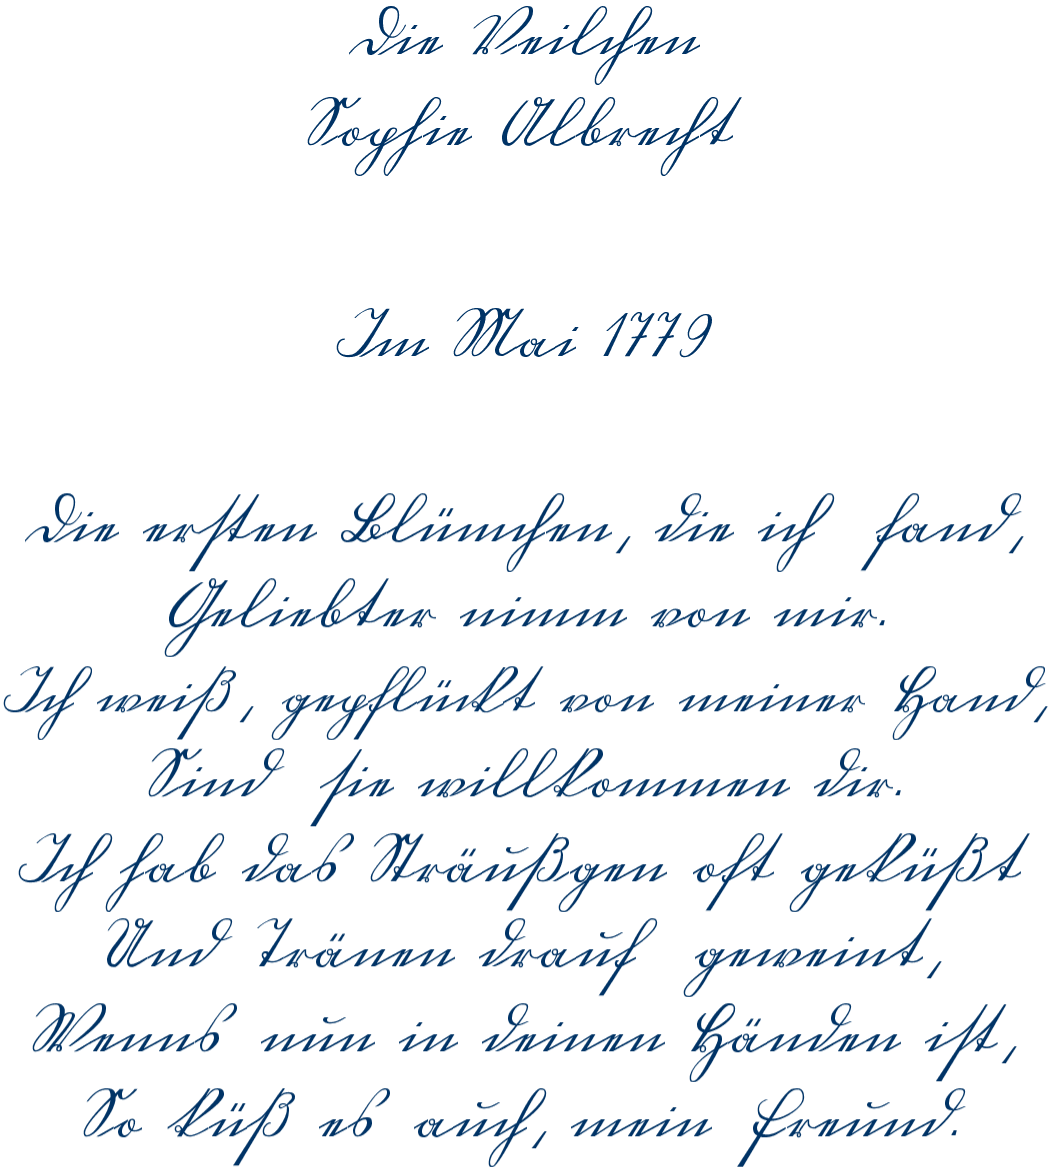 Die Veilchen
Sophie Albrecht
Im Mai 1779
Die ersten Blümchen, die ich fand,
Geliebter nimm von mir.
Ich weiß, gepflückt von meiner Hand,
Sind sie willkommen dir.
Ich hab das Sträußgen oft geküßt
Und Tränen drauf geweint,
Wenns nun in deinen Händen ist,
So küß es auch, mein Freund.